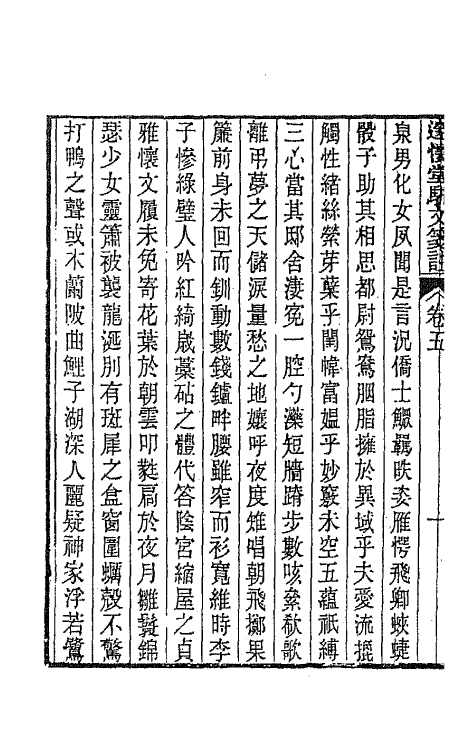 邃懷堂駢文箋註 卷五 一
泉男化女夙聞是言況僑士鰥羈昳委雁愕飛卿蛺蜨
骰子助其相思都尉鴛鴦胭脂擁於異域乎夫愛流挻
觸性緒絲縈芽蘖乎閨幃富媼乎妙竅未空五蘊祇縛
三心當其邸舍淒寃一腔勺藻短牆踦步數咳絫欷歌
離弔夢之天儲淚量愁之地孃呼夜度雉唱朝飛擲果
簾前身未回而釧動數錢鑪畔腰雖窄而衫寬維時李
子慘綠璧人吟紅綺歳藁砧之體代答陰宮縮屋之貞
雅懷文履未免寄花葉於朝雲叩蕤扃於夜月雛鬟錦
瑟少女靈簫被襲龍涎刖有斑犀之盒窗圍蠣殼不驚
打鴨之聲或木蘭陂曲鯉子湖深人麗疑神家浮若鷺